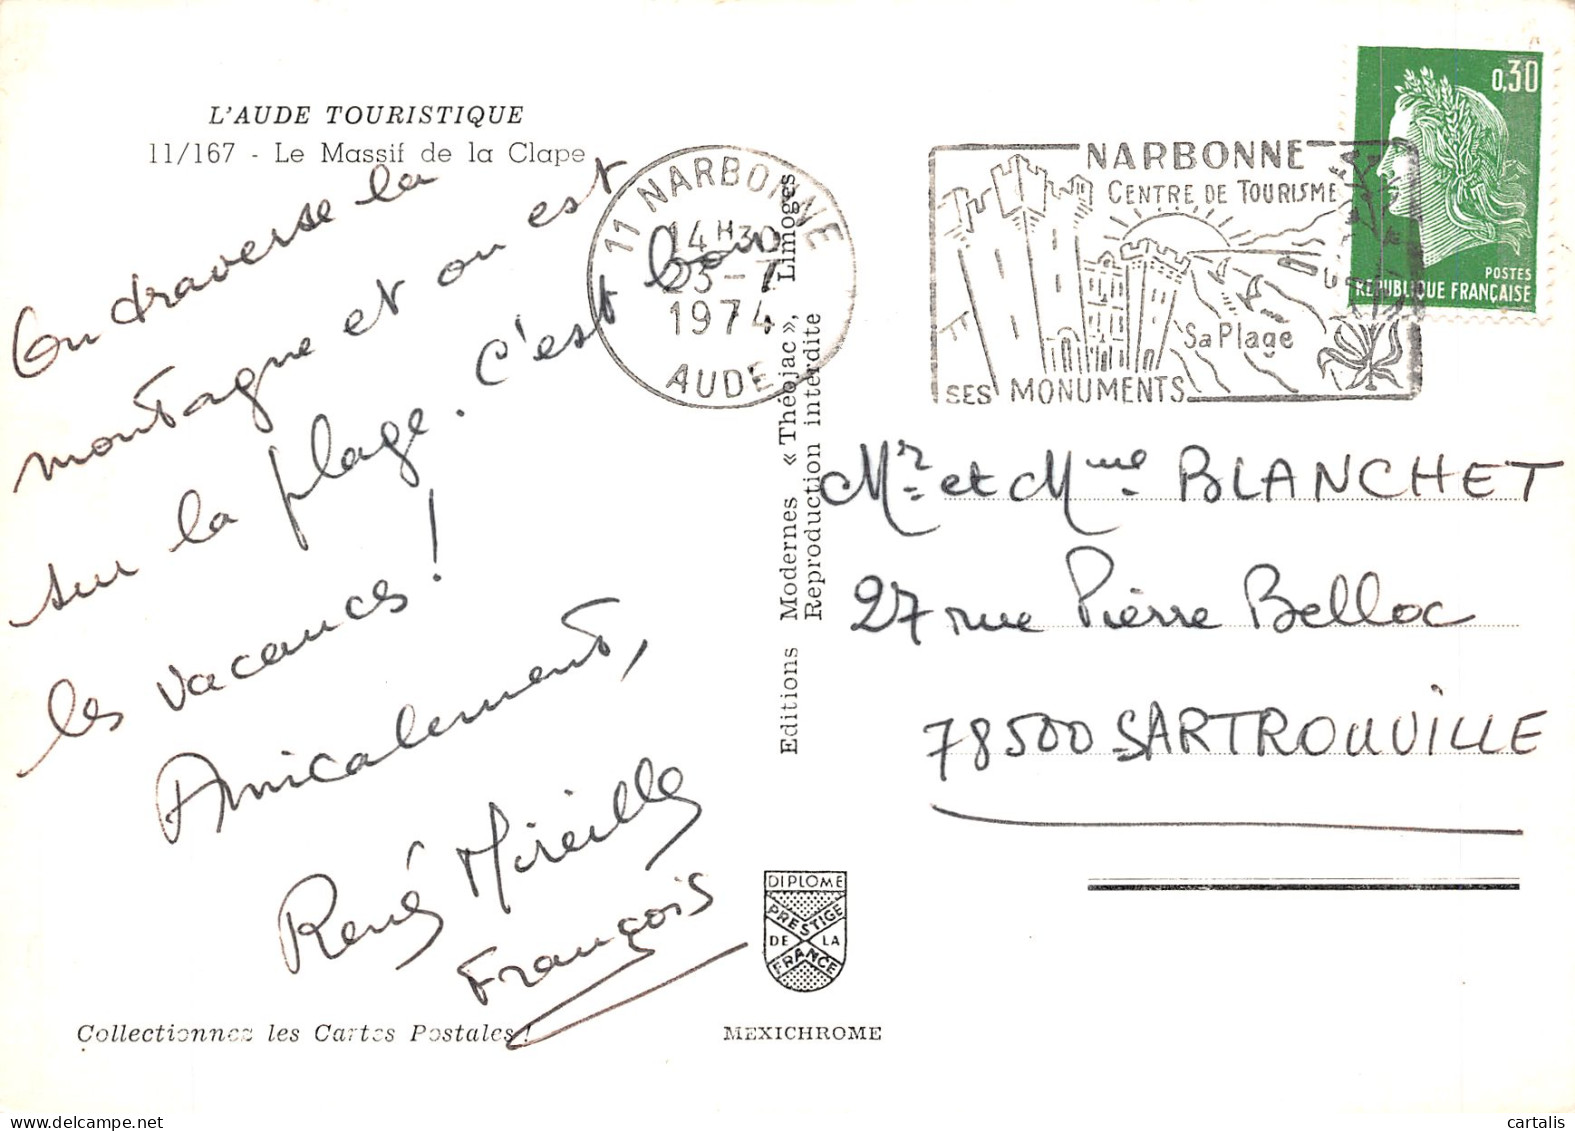 L'AUDE TOURISTIQUE
11/167 - Le Massif de la Clape
On traverse la
montagne et on est
sur la plage. c'est bon
les vacances!
Amicalement,
René Mireille
François
Collectionnez les Cartes Postales!
11 NARBONNE
14H30
23-7
1974
AUDE
Editions Modernes « Théojac », Limoges
Reproduction interdite
DIPLOME
PRESTIGE
DE LA
FRANCE
MEXICHROME
NARBONNE
CENTRE DE TOURISME
Sa Plage
SES MONUMENTS
0,30
POSTES
REPUBLIQUE FRANÇAISE
Mr et Mme BLANCHET
27 rue Pierre Belloc
78500 SARTROUVILLE
cartalis